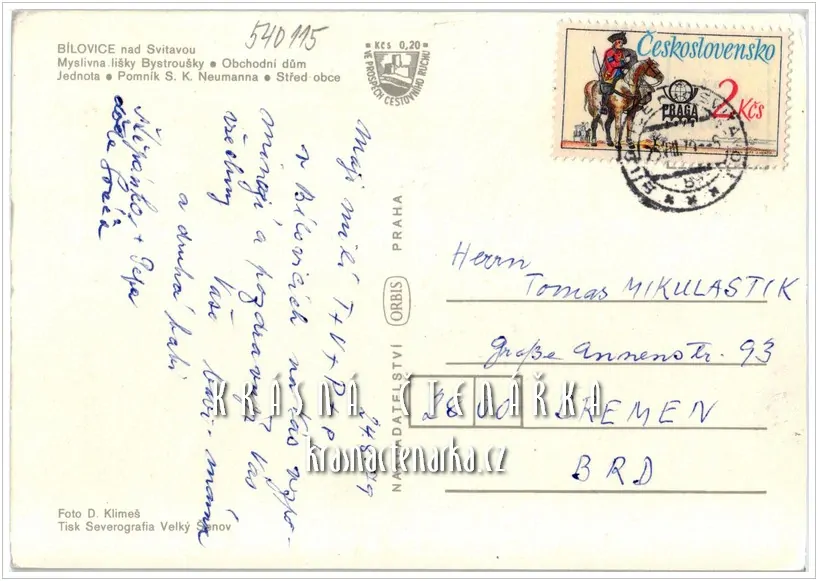 540115
BÍLOVICE nad Svitavou
Myslivna lišky Bystroušky • Obchodní dům
Jednota • Pomník S. K. Neumanna • Střed obce
Kčs 0,20
VE PROSPĚCH CESTOVNÍHO RUCHU
Československo
PRAGA
2 Kčs
Moji milí T+V+D+P 24.8.79
v Bílovicích na Vás vzpo-
mínají a pozdravují Vás
všechny Vaše babi-máma
a druhá babi
Štěpánka + Pepa
NAKLADATELSTVÍ ORBIS PRAHA
Herrn
Tomas MIKULASTIK
Große Annenstr. 93
2800 BREMEN
BRD
KRÁSNÁ ČTENÁŘKA
krasnactenarka.cz
Foto D. Klimeš
Tisk Severografia Velký Šenov